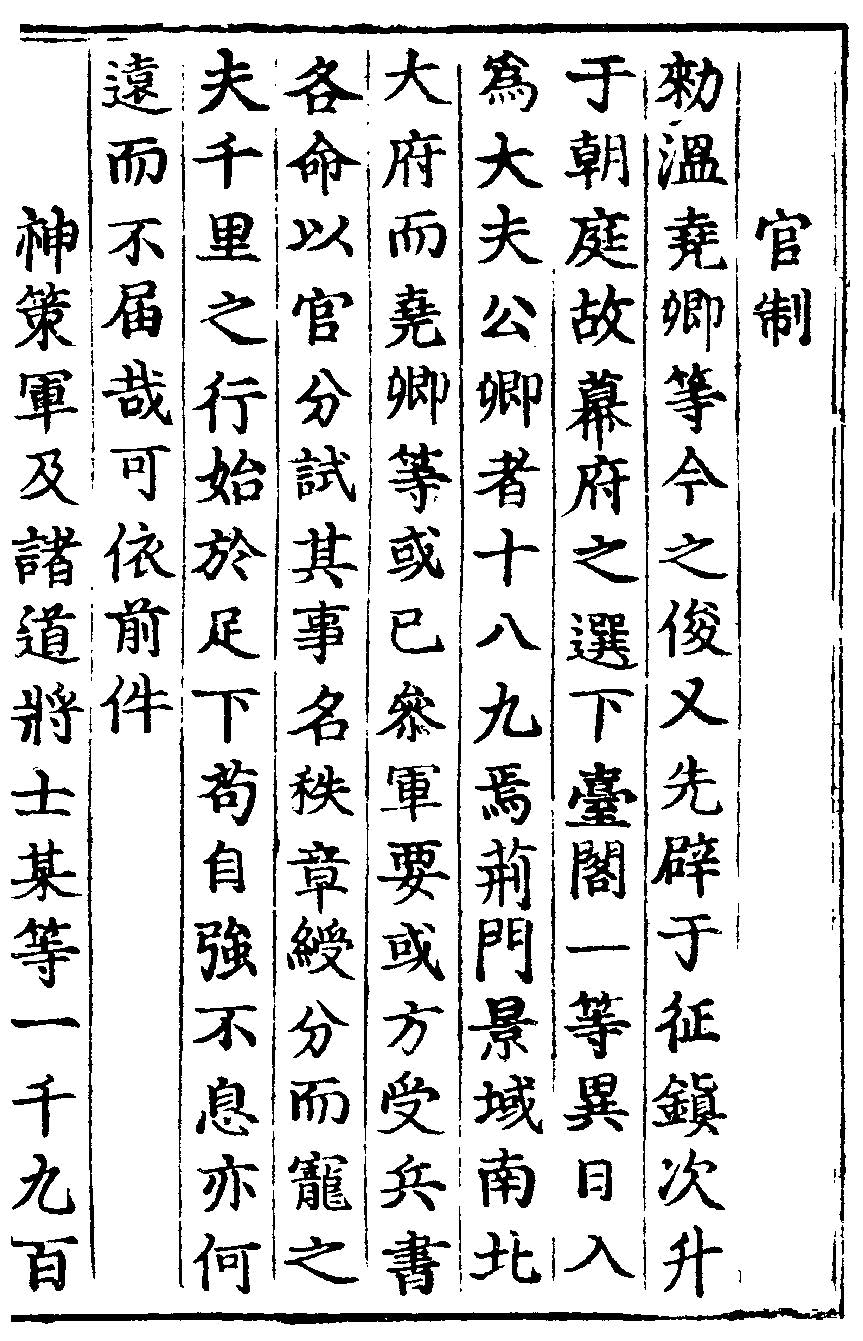 官制
勑溫堯卿等今之俊乂先辟于征鎮次升
于朝庭故幕府之選下臺閣一等異日入
爲大夫公卿者十八九焉荊門景域南北
大府而堯卿等或已叅軍要或方受兵書
各命以官分試其事名秩章綬分而寵之
夫千里之行始於足下苟自強不息亦何
遠而不届哉可依前件
神策軍及諸道將士某等一千九百